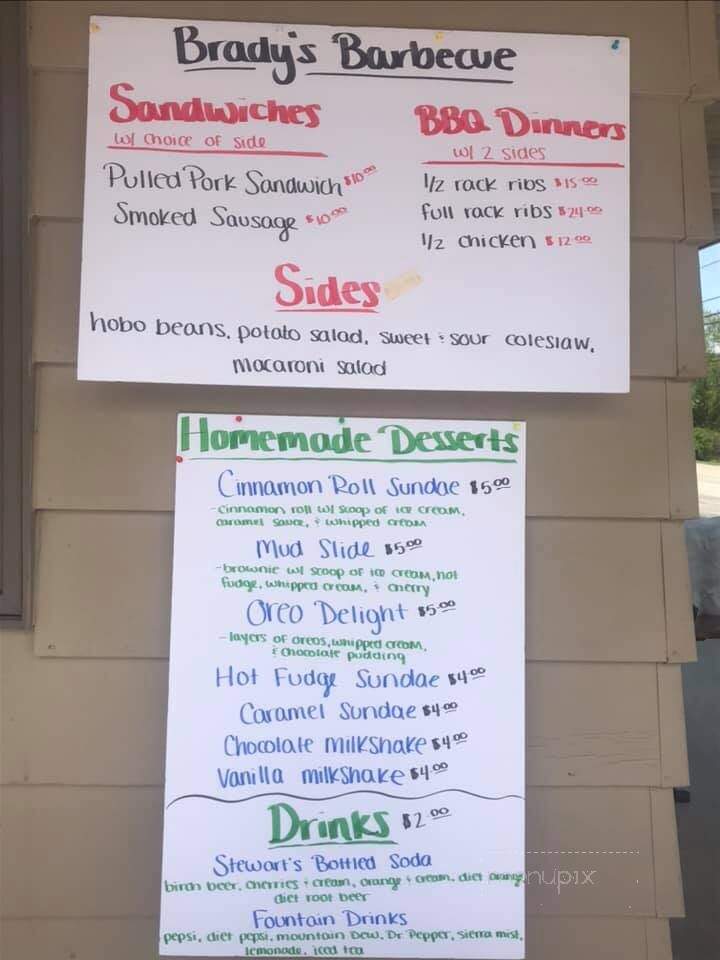 Brady's Barbecue
Sandwiches
w/ choice of side
Pulled Pork Sandwich $10.00
Smoked Sausage $10.00
BBQ Dinners
w/ 2 sides
1/2 rack ribs $15.00
full rack ribs $24.00
1/2 chicken $12.00
Sides
hobo beans, potato salad, sweet & sour coleslaw,
macaroni salad
Homemade Desserts
Cinnamon Roll Sundae $5.00
-cinnamon roll w/ scoop of ice cream,
caramel sauce, & whipped cream
Mud Slide $5.00
-brownie w/ scoop of ice cream, hot
fudge, whipped cream, & cherry
Oreo Delight $5.00
-layers of oreos, whipped cream,
& chocolate pudding
Hot Fudge Sundae $4.00
Caramel Sundae $4.00
Chocolate milkshake $4.00
Vanilla milkshake $4.00
Drinks $2.00
Stewart's Bottled Soda
birch beer, cherries & cream, orange & cream, diet orange,
diet root beer
Fountain Drinks
pepsi, diet pepsi, mountain Dew, Dr Pepper, sierra mist,
lemonade, iced tea